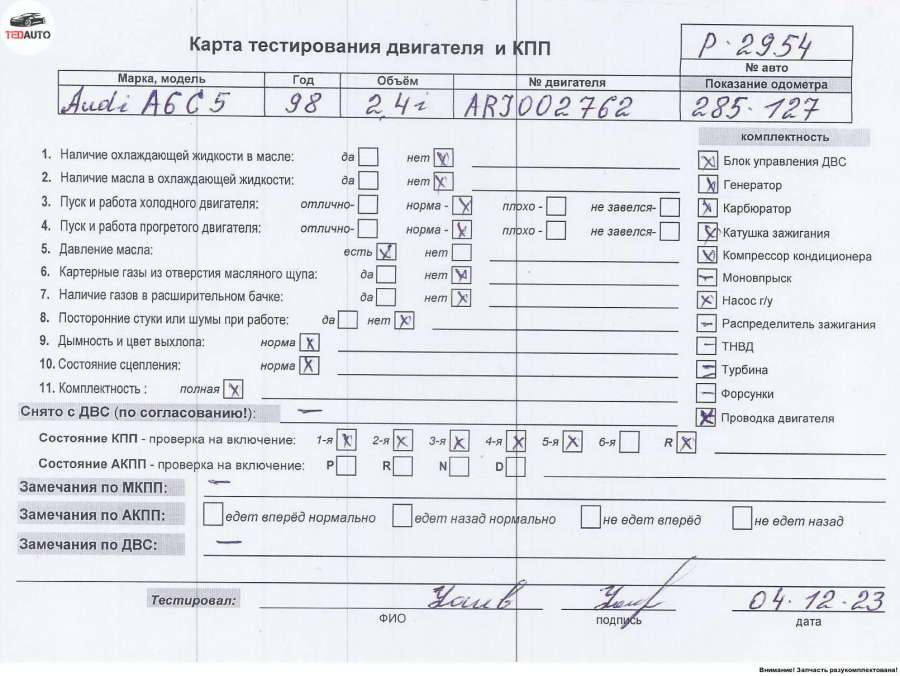 TEDAUTO
Карта тестирования двигателя и КПП
Р-2954
№ авто
Марка, модель Год Объём № двигателя Показание одометра
Audi A6C5 98 2,4i ARJ002762 285-127
комплектность
1. Наличие охлаждающей жидкости в масле: да нет Блок управления ДВС
2. Наличие масла в охлаждающей жидкости: да нет Генератор
3. Пуск и работа холодного двигателя: отлично- норма - плохо - не завелся- Карбюратор
4. Пуск и работа прогретого двигателя: отлично- норма - плохо - не завелся- Катушка зажигания
5. Давление масла: есть нет Компрессор кондиционера
6. Картерные газы из отверстия масляного щупа: да нет Моновпрыск
7. Наличие газов в расширительном бачке: да нет Насос г/у
8. Посторонние стуки или шумы при работе: да нет Распределитель зажигания
9. Дымность и цвет выхлопа: норма ТНВД
10. Состояние сцепления: норма Турбина
11. Комплектность : полная Форсунки
Снято с ДВС (по согласованию!): — Проводка двигателя
Состояние КПП - проверка на включение: 1-я 2-я 3-я 4-я 5-я 6-я R
Состояние АКПП - проверка на включение: P R N D
Замечания по МКПП: —
Замечания по АКПП: едет вперёд нормально едет назад нормально не едет вперёд не едет назад
Замечания по ДВС: —
Тестировал: 04.12.23
ФИО подпись дата
Внимание! Запчасть разукомплектована!